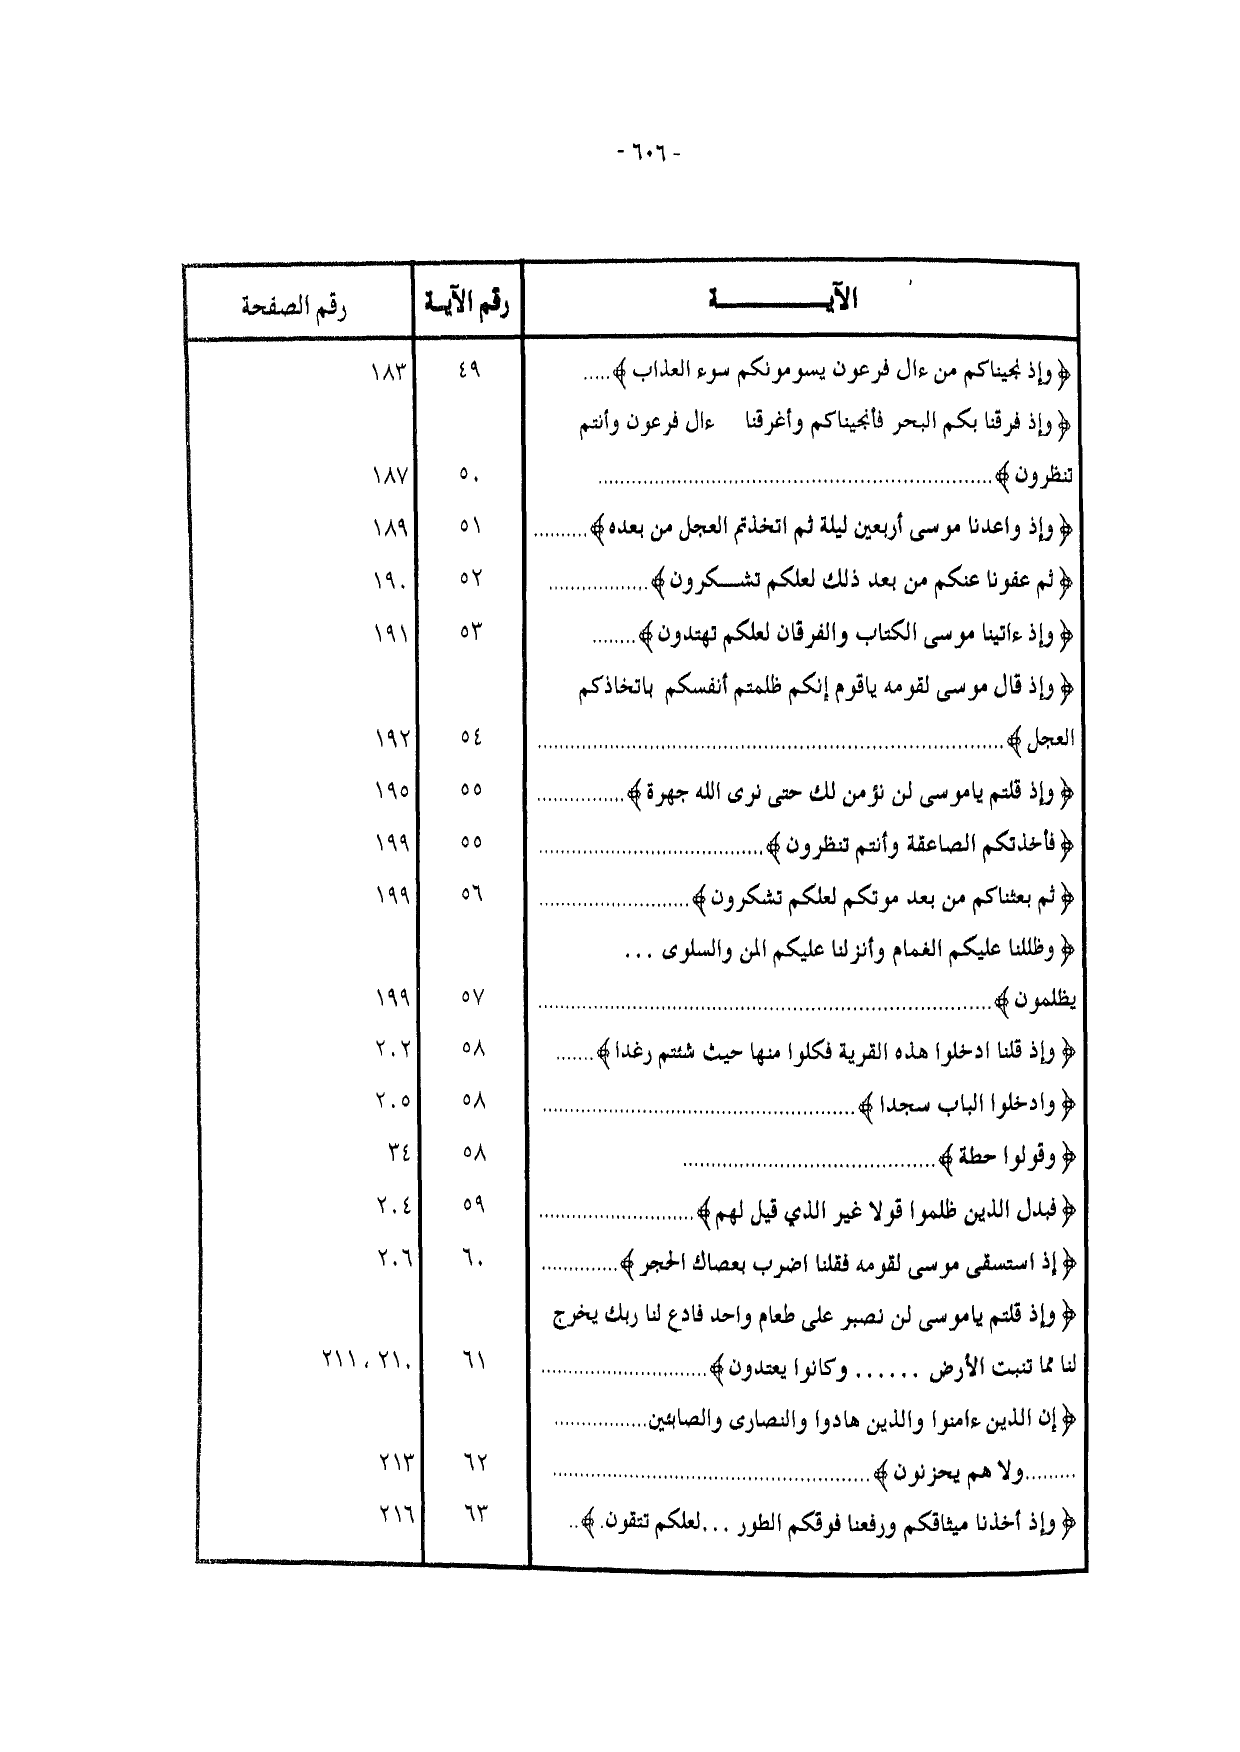 - ٦٠٦ -
الآيــــــــــة رقم الآيـة رقم الصفحة
﴿ وإذ نجيناكم من ءال فرعون يسومونكم سوء العذاب ﴾..... ٤٩ ١٨٣
﴿ وإذ فرقنا بكم البحر فأنجيناكم وأغرقنا ءال فرعون وأنتم
تنظرون ﴾.......................................................................... ٥٠ ١٨٧
﴿ وإذ واعدنا موسى أربعين ليلة ثم اتخذتم العجل من بعده ﴾.......... ٥١ ١٨٩
﴿ ثم عفونا عنكم من بعد ذلك لعلكم تشــكرون ﴾.................. ٥٢ ١٩٠
﴿ وإذ ءاتينا موسى الكتاب والفرقان لعلكم تهتدون ﴾........ ٥٣ ١٩١
﴿ وإذ قال موسى لقومه ياقوم إنكم ظلمتم أنفسكم باتخاذكم
العجل ﴾....................................................................................... ٥٤ ١٩٢
﴿ وإذ قلتم ياموسى لن نؤمن لك حتى نرى الله جهرة ﴾................ ٥٥ ١٩٥
﴿ فأخذتكم الصاعقة وأنتم تنظرون ﴾.......................................... ٥٥ ١٩٩
﴿ ثم بعثناكم من بعد موتكم لعلكم تشكرون ﴾............................ ٥٦ ١٩٩
﴿ وظللنا عليكم الغمام وأنزلنا عليكم المن والسلوى ...
يظلمون ﴾.................................................................................... ٥٧ ١٩٩
﴿ وإذ قلنا ادخلوا هذه القرية فكلوا منها حيث شئتم رغدا ﴾....... ٥٨ ٢٠٢
﴿ وادخلوا الباب سجدا ﴾.......................................................... ٥٨ ٢٠٥
﴿ وقولوا حطة ﴾............................................... ٥٨ ٣٤
﴿ فبدل الذين ظلموا قولا غير الذي قيل لهم ﴾............................. ٥٩ ٢٠٤
﴿ إذ استسقى موسى لقومه فقلنا اضرب بعصاك الحجر ﴾.............. ٦٠ ٢٠٦
﴿ وإذ قلتم ياموسى لن نصبر على طعام واحد فادع لنا ربك يخرج
لنا مما تنبت الأرض ...... وكانوا يعتدون ﴾............................... ٦١ ٢١٠ ، ٢١١
﴿ إن الذين ءامنوا والذين هادوا والنصارى والصابئين.................
.........ولا هم يحزنون ﴾........................................................... ٦٢ ٢١٣
﴿ وإذ أخذنا ميثاقكم ورفعنا فوقكم الطور ...لعلكم تتقون. ﴾.. ٦٣ ٢١٦